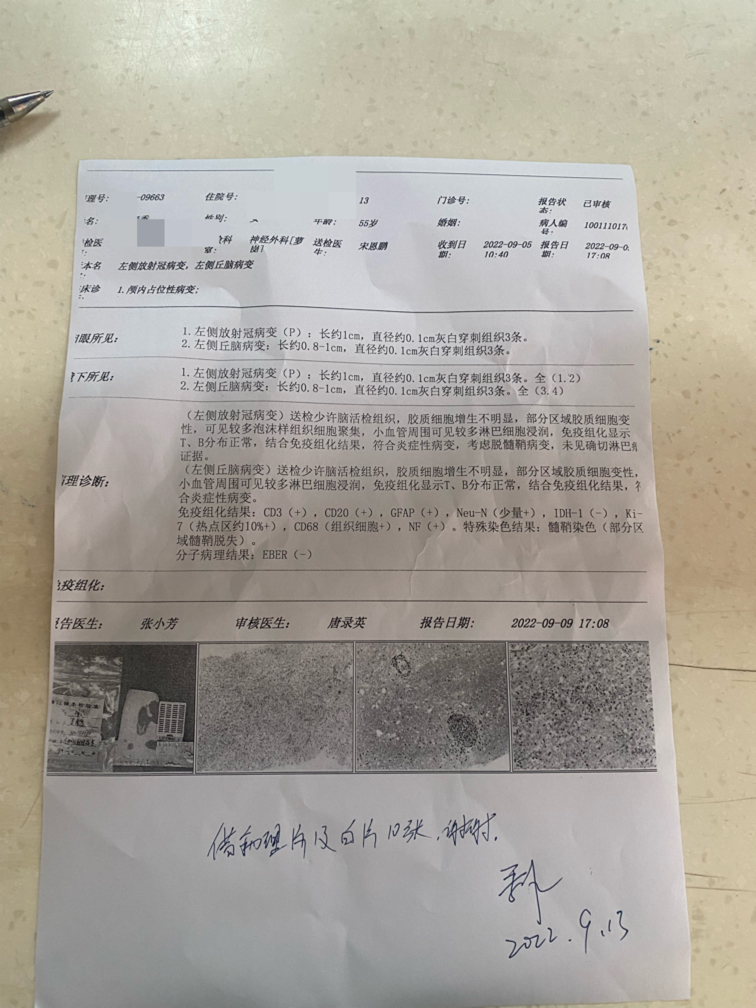 理号: -09663 住院号: 13 门诊号: 报告状态: 已审核
名: 性别: 年龄: 55岁 婚姻: 病人编号: 100111017
检医 科室: 神经外科[萝岗] 送检医生: 宋恩鹏 收到日期: 2022-09-05 10:40 报告日期: 2022-09-0 17:08
本名 左侧放射冠病变，左侧丘脑病变
床诊 1.颅内占位性病变;
眼所见: 1.左侧放射冠病变（P）: 长约1cm，直径约0.1cm灰白穿刺组织3条。
2.左侧丘脑病变: 长约0.8-1cm，直径约0.1cm灰白穿刺组织3条。
下所见: 1.左侧放射冠病变（P）: 长约1cm，直径约0.1cm灰白穿刺组织3条。全（1.2）
2.左侧丘脑病变: 长约0.8-1cm，直径约0.1cm灰白穿刺组织3条。全（3.4）
（左侧放射冠病变）送检少许脑活检组织，胶质细胞增生不明显，部分区域胶质细胞变
性，可见较多泡沫样组织细胞聚集，小血管周围可见较多淋巴细胞浸润，免疫组化显示
T、B分布正常，结合免疫组化结果，符合炎症性病变，考虑脱髓鞘病变，未见确切淋巴
证据。
（左侧丘脑病变）送检少许脑活检组织，胶质细胞增生不明显，部分区域胶质细胞变性，
理诊断: 小血管周围可见较多淋巴细胞浸润，免疫组化显示T、B分布正常，结合免疫组化结果，
合炎症性病变。
免疫组化结果: CD3（+），CD20（+），GFAP（+），Neu-N（少量+），IDH-1（-），Ki-
7（热点区约10%+），CD68（组织细胞+），NF（+）。特殊染色结果: 髓鞘染色（部分区
域髓鞘脱失）。
分子病理结果: EBER（-）
疫组化:
告医生: 张小芳 审核医生: 唐录英 报告日期: 2022-09-09 17:08
借病理片及白片10张，谢谢.
2022.9.13